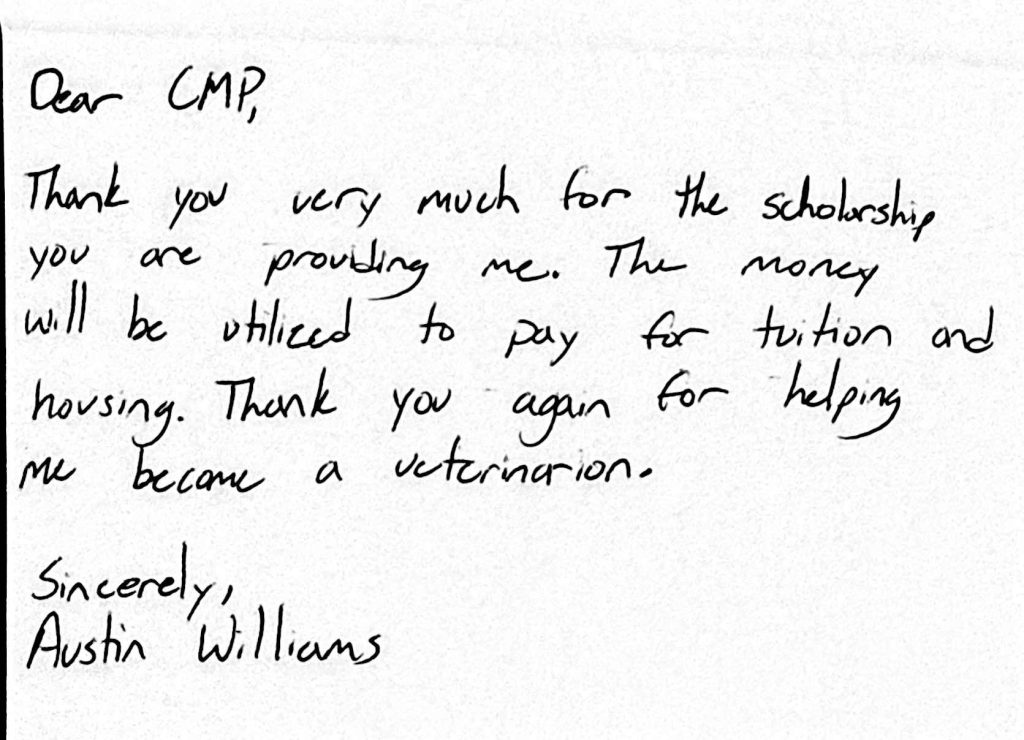 Dear CMP,
Thank you very much for the scholarship
you are providing me. The money
will be utilized to pay for tuition and
housing. Thank you again for helping
me become a veterinarian.
Sincerely,
Austin Williams